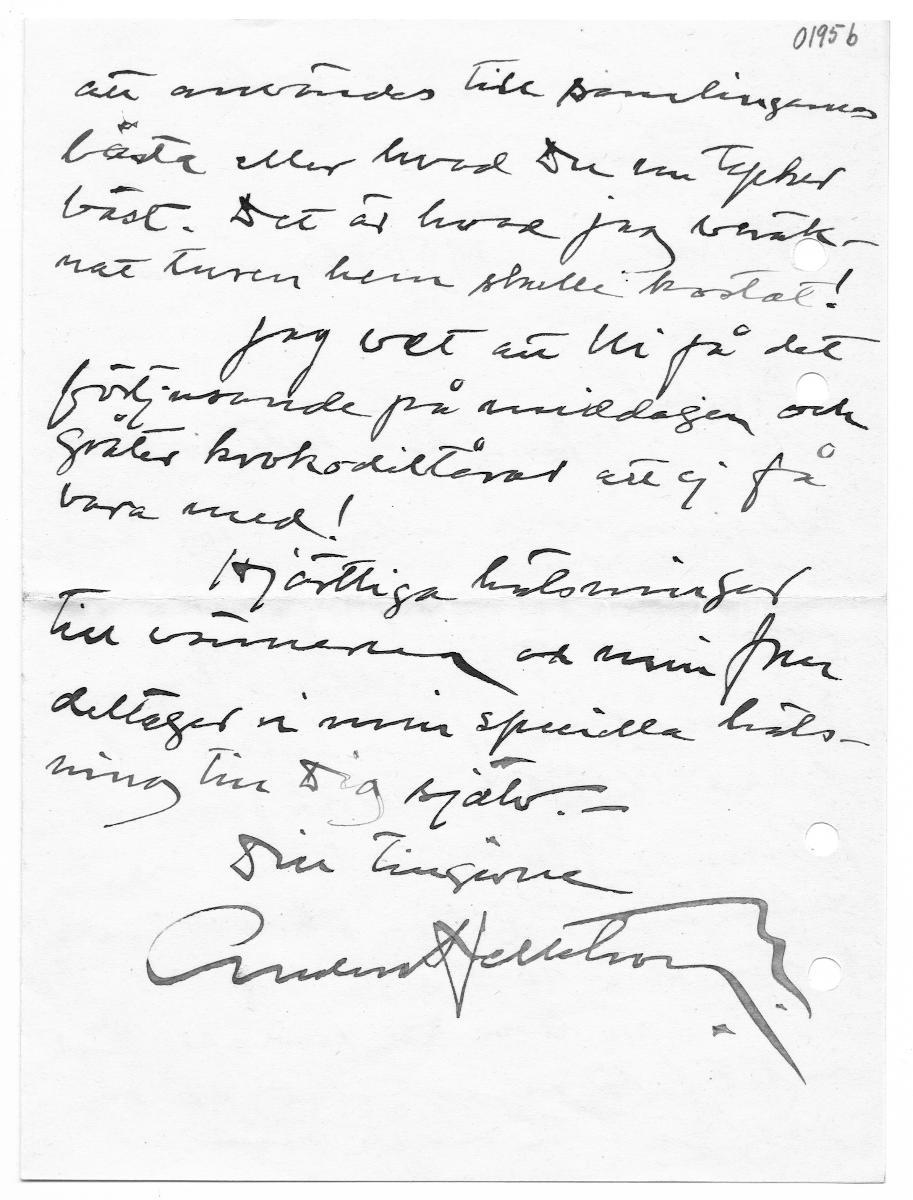 01956
att användes till samlingarnas
bästa eller hvad Du nu tycker
bäst. Det är hvad jag beräk-
nat turen hem skulle kostat!
Jag vet att Ni få det
förtjusande på middagen och
gråter krokodiltårar att ej få
vara med!
Hjärtliga hälsningar
till vännerna och min fru
deltager i min speciella häls-
ning till Dig själv. –
Din tillgivne
Anders Hellström